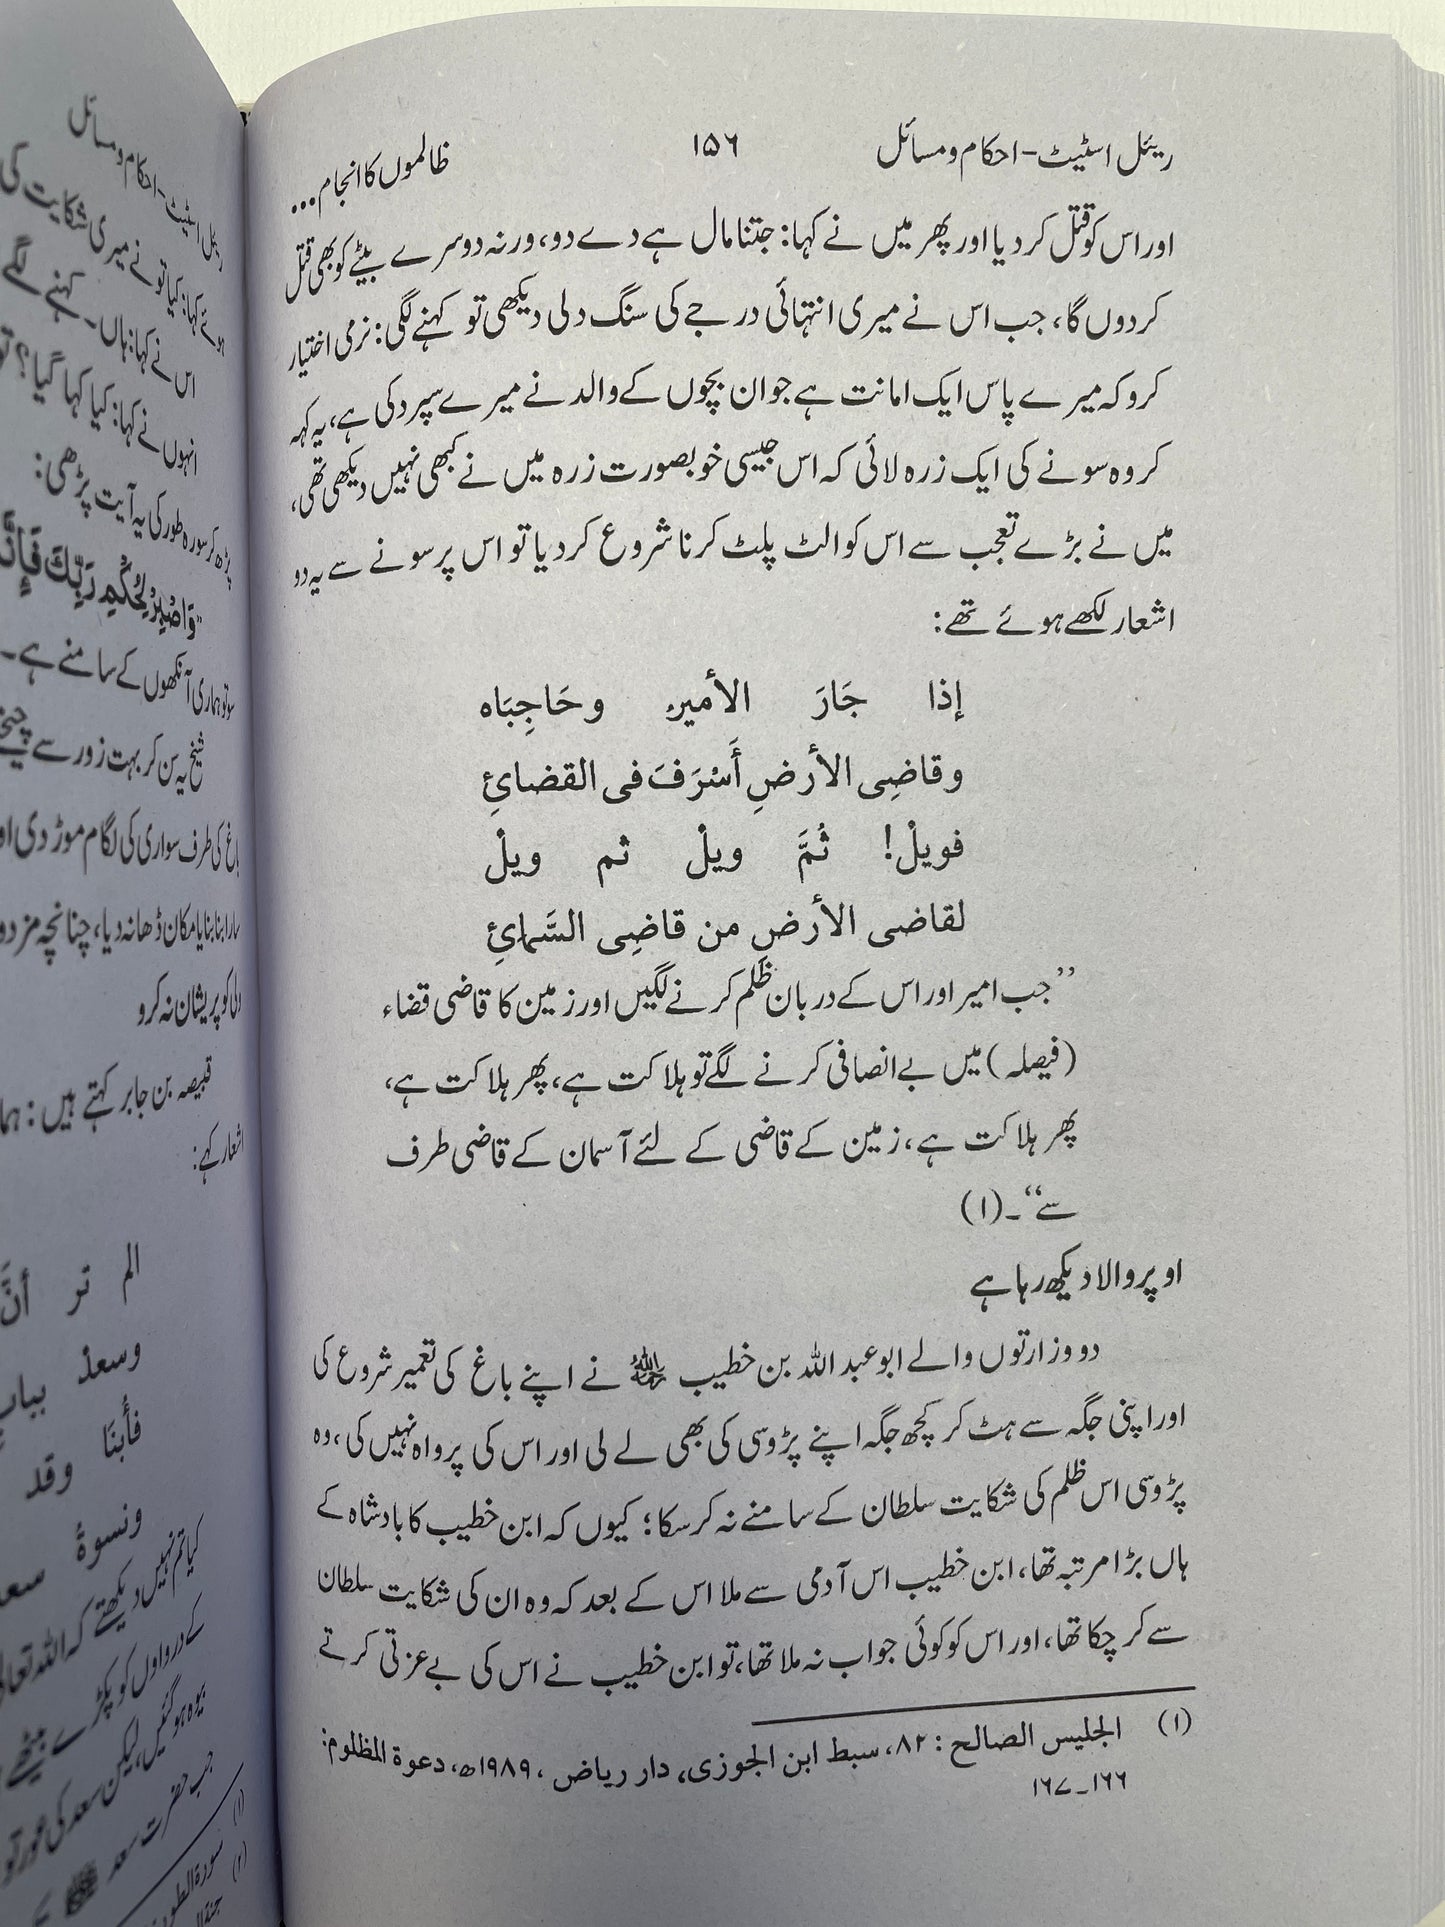 ریئل اسٹیٹ-احکام ومسائل ۱۵۶ ظالموں کا انجام...
اور اس کو قتل کر دیا اور پھر میں نے کہا: جتنا مال ہے دے دو، ورنہ دوسرے بیٹے کو بھی قتل
کردوں گا، جب اس نے میری انتہائی درجے کی سنگ دلی دیکھی تو کہنے لگی: نرمی اختیار
کرو کہ میرے پاس ایک امانت ہے جو ان بچوں کے والد نے میرے سپرد کی ہے، یہ کہہ
کر وہ سونے کی ایک زرہ لائی کہ اس جیسی خوبصورت زرہ میں نے کبھی نہیں دیکھی تھی،
میں نے بڑے تعجب سے اس کو الٹ پلٹ کرنا شروع کر دیا تو اس پر سونے سے یہ دو
اشعار لکھے ہوئے تھے:
إذا جَارَ الأمير وحَاجِبَاه
وقاضِی الأرضِ أَسْرَفَ فی القضائِ
فویلْ! ثُمَّ ویلْ ثم ویلْ
لقاضی الأرضِ من قاضِی السَّمائِ
”جب امیر اور اس کے دربان ظلم کرنے لگیں اور زمین کا قاضی قضاء
(فیصلہ) میں بے انصافی کرنے لگے تو ہلاکت ہے، پھر ہلاکت ہے،
پھر ہلاکت ہے، زمین کے قاضی کے لئے آسمان کے قاضی طرف
سے“۔(۱)
اوپر والا دیکھ رہا ہے
دو وزارتوں والے ابو عبد اللہ بن خطیب رحمہ اللہ نے اپنے باغ کی تعمیر شروع کی
اور اپنی جگہ سے ہٹ کر کچھ جگہ اپنے پڑوسی کی بھی لے لی اور اس کی پرواہ نہیں کی، وہ
پڑوسی اس ظلم کی شکایت سلطان کے سامنے نہ کر سکا؛ کیوں کہ ابن خطیب کا بادشاہ کے
ہاں بڑا مرتبہ تھا، ابن خطیب اس آدمی سے ملا اس کے بعد کہ وہ ان کی شکایت سلطان
سے کر چکا تھا، اور اس کو کوئی جواب نہ ملا تھا، تو ابن خطیب نے اس کی بے عزتی کرتے
(۱) الجلیس الصالح: ۸۲، سبط ابن الجوزی، دار ریاض، ۱۹۸۹ھ، دعوۃ المظلوم:
۱۶۶۔۱۶۷
ریئل اسٹیٹ-احکام ومسائل
ہوئے کہا: کیا تو نے میری شکایت کی
اس نے کہا: ہاں۔ کہنے لگے
انہوں نے کہا: کیا کہا گیا؟
پڑھ کر سورہ طور کی یہ آیت پڑھی:
”وَاصْبِرْ لِحُكْمِ رَبِّكَ فَإِنَّ
سو تو ہماری آنکھوں کے سامنے ہے۔
شیخ یہ سن کر بہت زور سے
باغ کی طرف سواری کی لگام موڑ دی
سارا بنا بنایا مکان ڈھا نہ دیا، چنانچہ مزدو
کو پریشان نہ کرو
قبیصہ بن جابر کہتے ہیں:
اشعار کہے:
الم تر أنَّ
وسعدٌ بباب
فأبنَا وقد
ونسوةُ سعد
کیا تم نہیں دیکھتے کہ اللہ تعالی
کے دروازوں کو پکڑے بیٹھے
بیوہ ہو گئیں، لیکن سعد کی عورتو
جب حضرت سعد
(۱) سورة الطور
(۲)